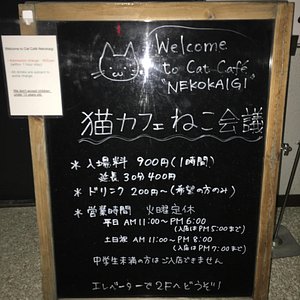 Welcome to Cat Café Nekokaigi
Welcome
to Cat Café
"NEKOKAIGI"
猫カフェねこ会議
＊入場料 900円(1時間)
延長 30分400円
＊ドリンク 200円〜(希望の方のみ)
＊営業時間 火曜定休
平日 AM11:00〜PM6:00
(入店はPM5:00まで)
土日祝 AM11:00〜PM8:00
(入店はPM7:00まで)
中学生未満の方はご入店できません
エレベーターで2Fへどうぞ!